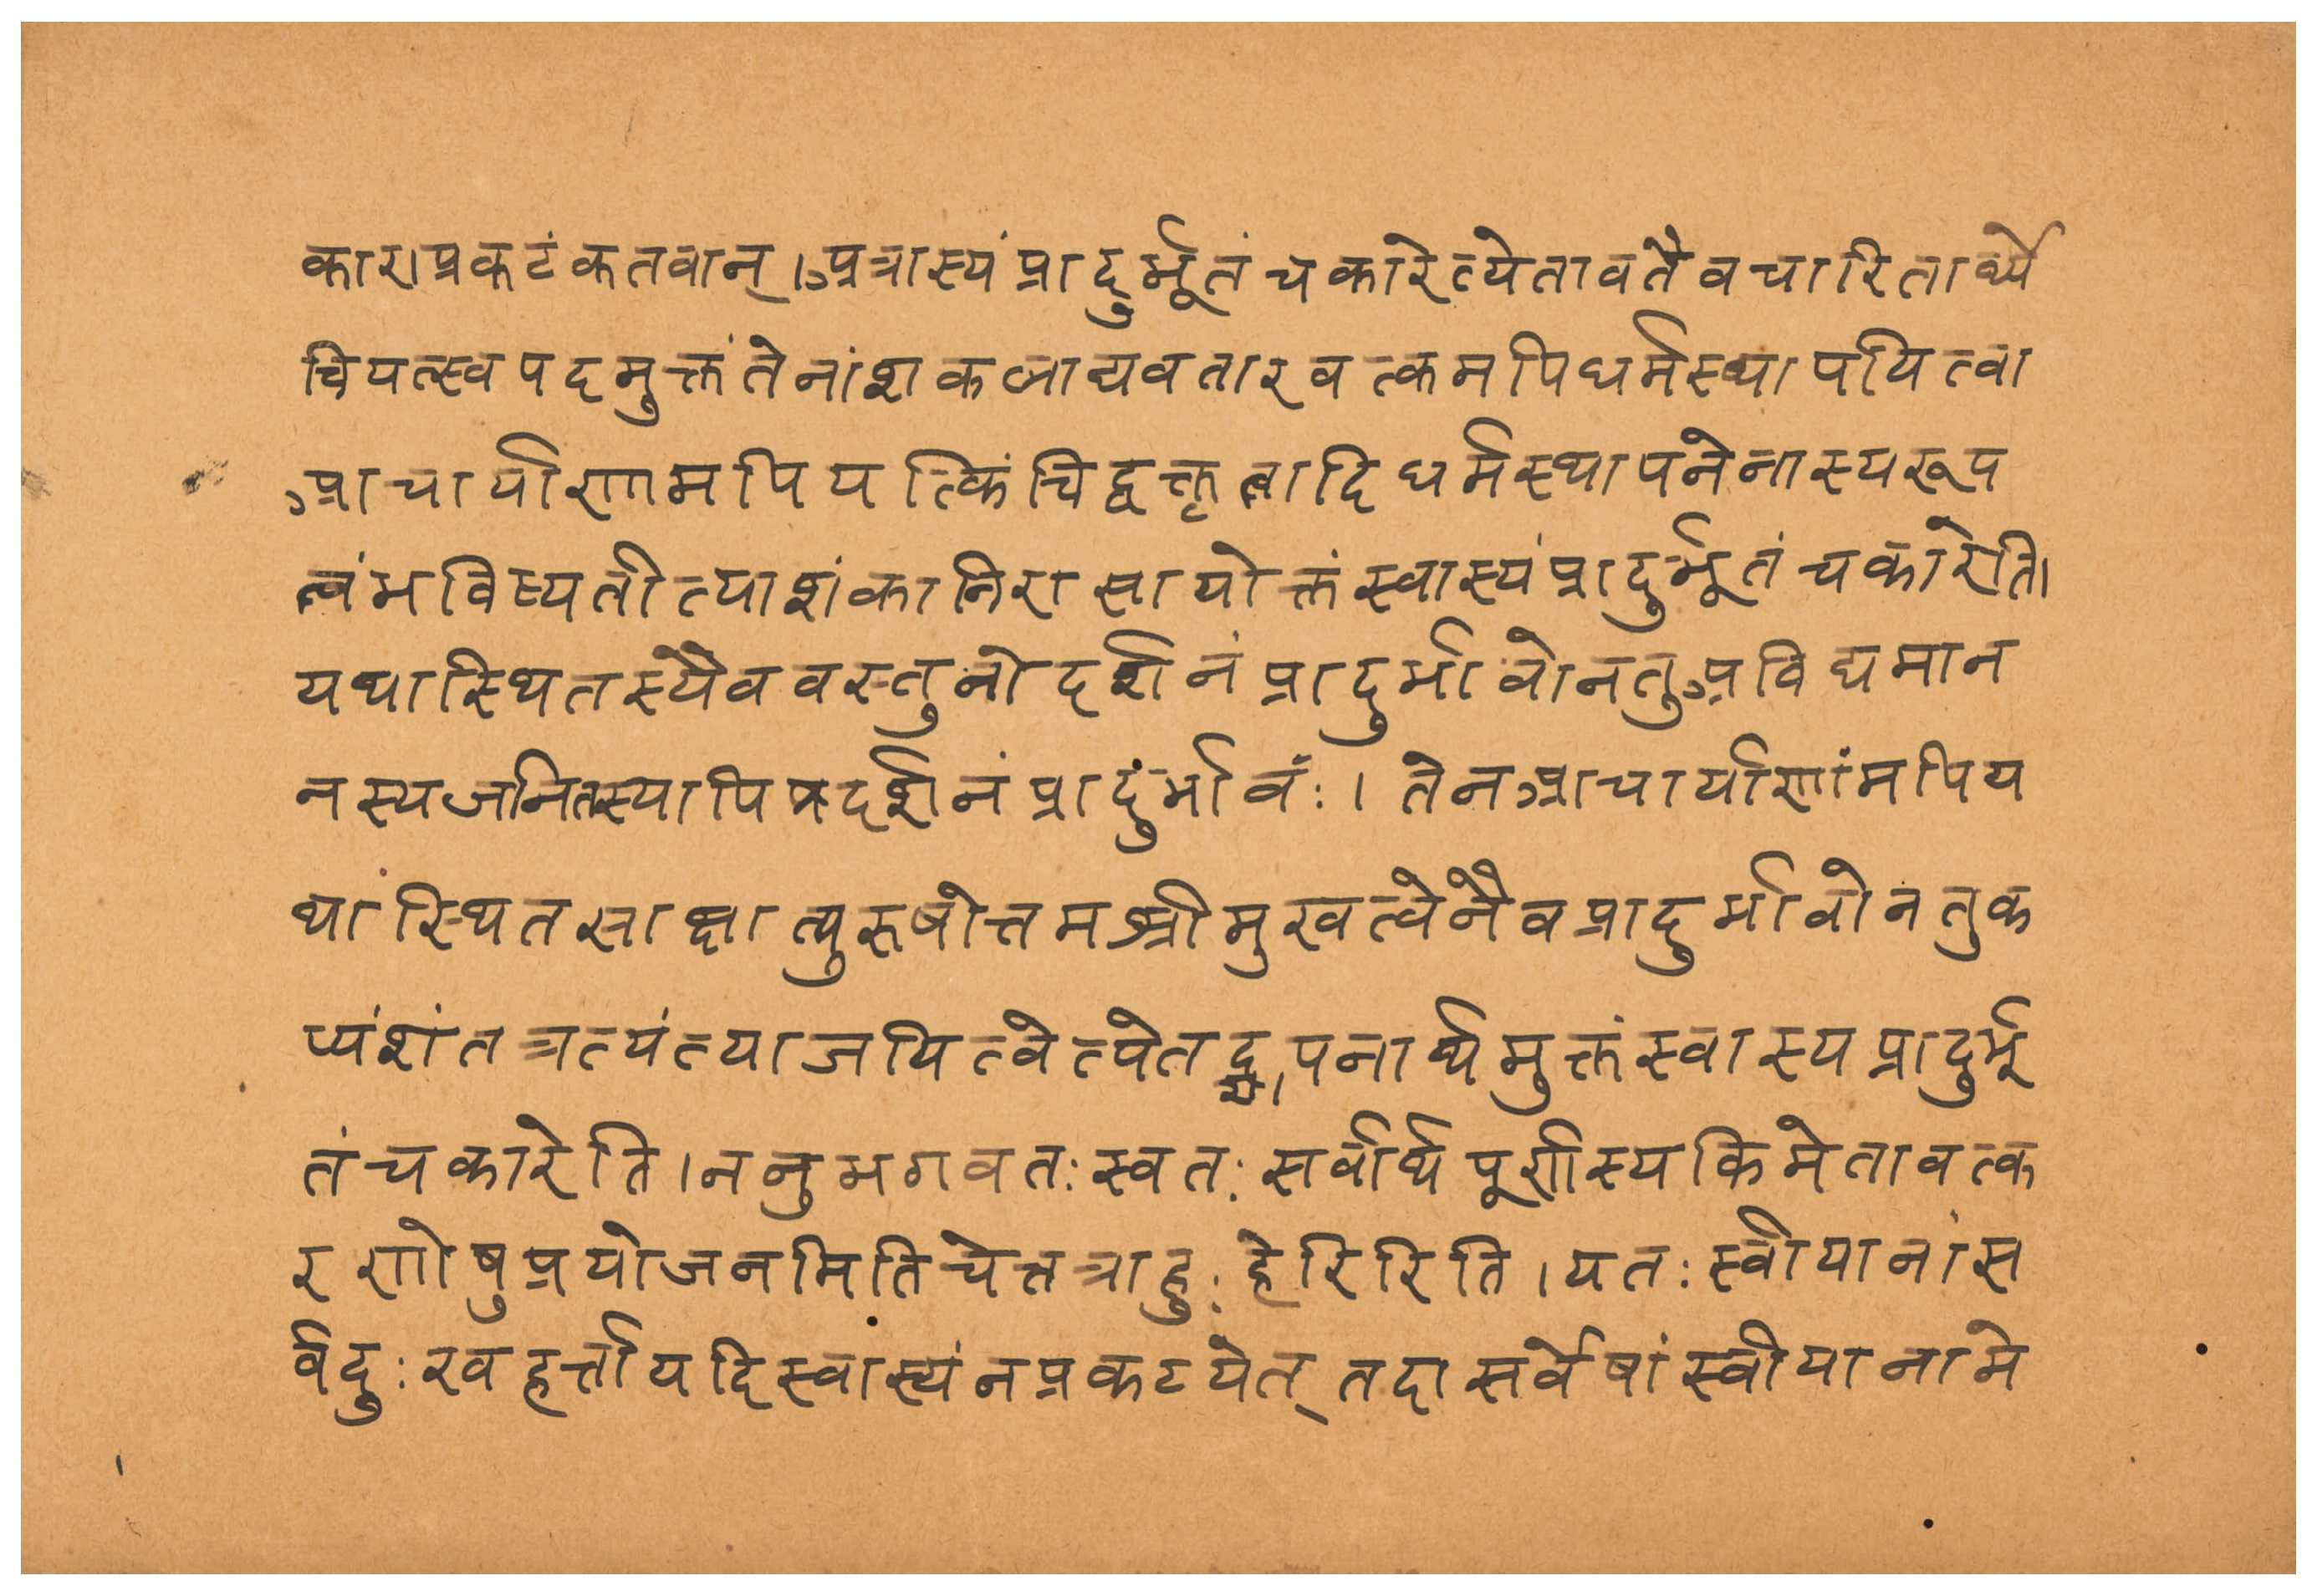 कार।प्रकटंकतवान्।अत्रास्यंप्रादुर्भूतंचकारेत्येतावतैवचारितार्थ्ये
चियत्स्वपदमुक्तंतेनांशकलाद्यवतारवत्कमपिधर्मस्थापयित्वा
आचार्याणामपियत्किंचिद्वक्तृत्वादिधर्मस्थापनेनास्यरूप
त्वंभविष्यतीत्याशंकानिरासायोक्तंस्वास्यंप्रादुर्भूतंचकारेति।
यथास्थितस्यैववस्तुनोदर्शनंप्रादुर्भावोनतुअविद्यमान
नस्यजनितस्यापिप्रदर्शनंप्रादुंर्भावंः।तेनआचार्याणांमपिय
थांस्थितसाक्षात्पुरुषोत्तमश्रीमुखत्वेनैवप्रादुर्भावोनतुक
प्यंशंतत्रत्यंत्याजयित्वेत्येतद्ज्ञापनार्थमुक्तंस्वास्यप्रादुर्भू
तंचकारेति।ननुभगवतःस्वतःसर्वार्थपूर्णास्यकिमेतावत्क
रणेषुप्रयोजनमितिचेत्तत्राहुःहेरिरिति।यतःस्वीयानांस
र्वदुःखहर्त्तायदिस्वास्यंनप्रकटयेत्तदासर्वेषांस्वीयानामे